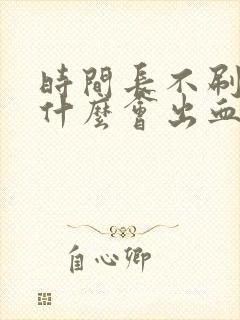 時間長不刷
什麼會出血
自心卿